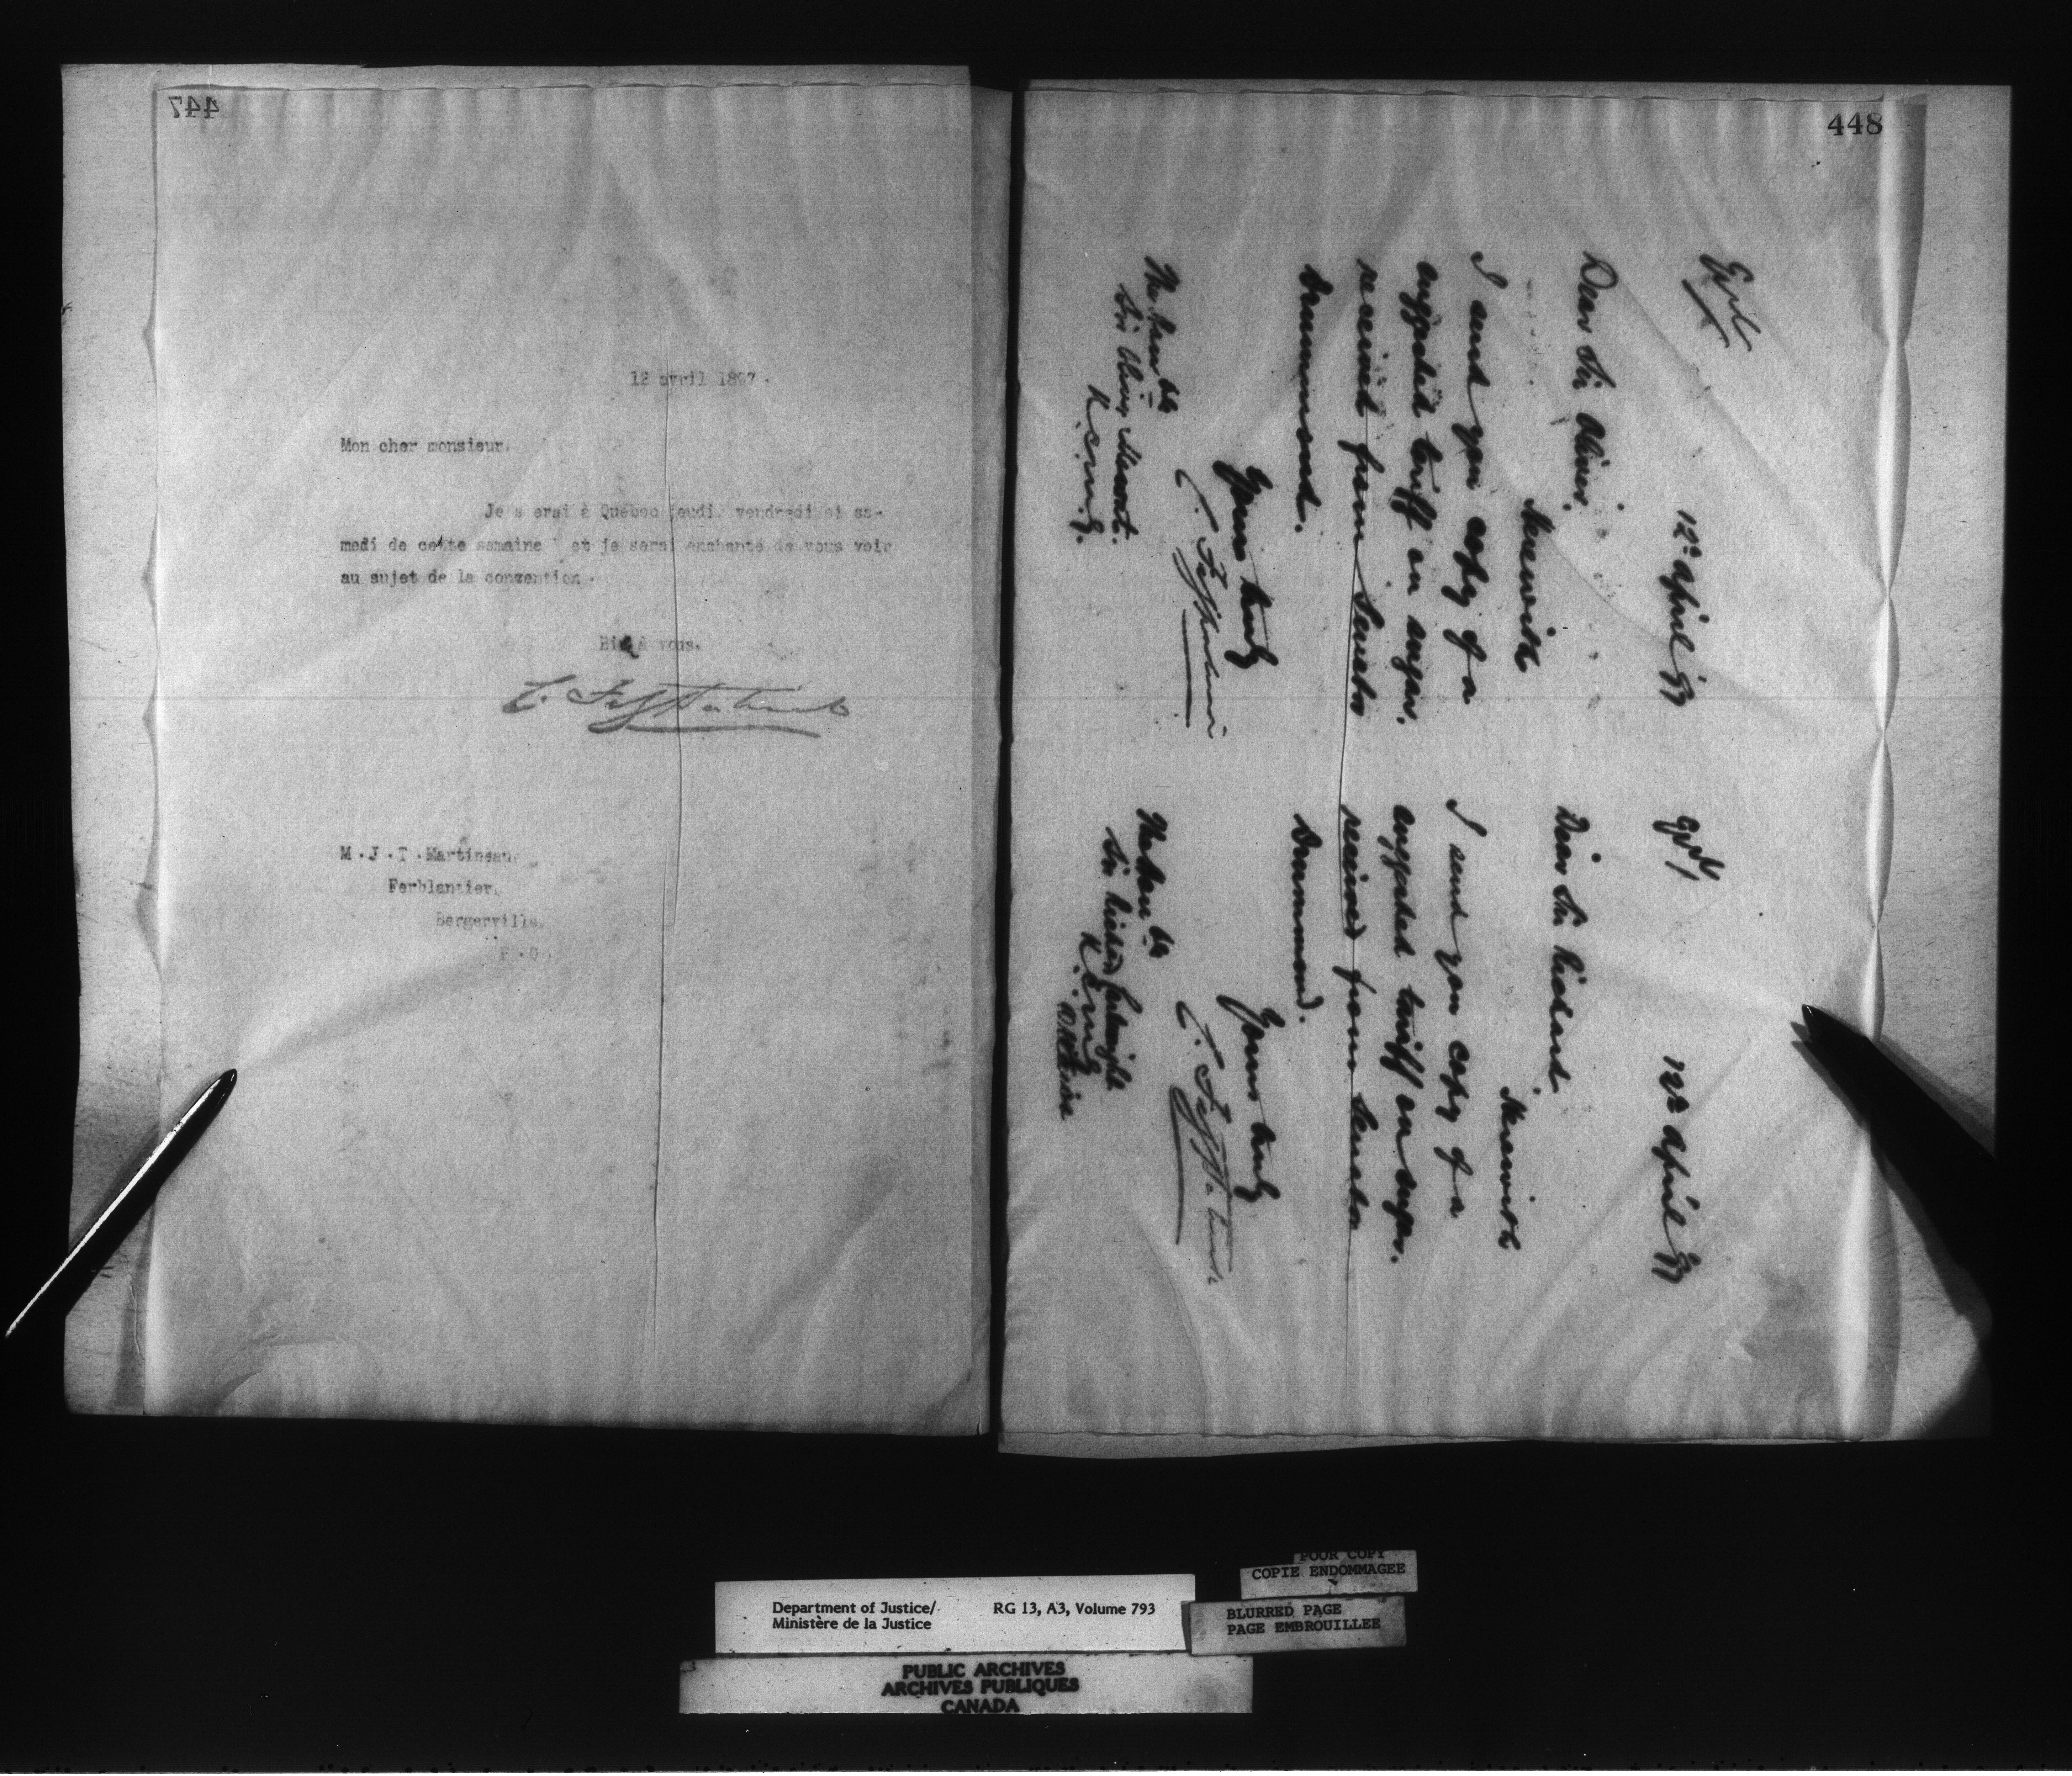 447
12 avril 1897.
Mon cher monsieur,
Je serai à Québec jeudi, vendredi et sa-
medi de cette semaine et je serai enchanté de vous voir
au sujet de la convention.
Bien à vous,
C. Fitzpatrick
M.J.T. Martineau,
Ferblantier,
Bergerville,
P.Q.
448
12th April 97
Dear Sir Oliver,
Herewith
I send you copy of a
suggested tariff on sugar.
received from Senator
Drummond.
Yours truly
C. Fitzpatrick
The Honble
Sir Oliver Mowat.
K.C.M.G.
12th April 97
Dear Sir Richard
Herewith
I send you copy of a
suggested tariff on sugar.
received from Senator
Drummond.
Yours truly
C. Fitzpatrick
The Honble
Sir Richard Cartwright
K.C.M.G.
Department of Justice/
Ministère de la Justice
RG 13, A3, Volume 793
POOR COPY
COPIE ENDOMMAGEE
BLURRED PAGE
PAGE EMBROUILLEE
PUBLIC ARCHIVES
ARCHIVES PUBLIQUES
CANADA